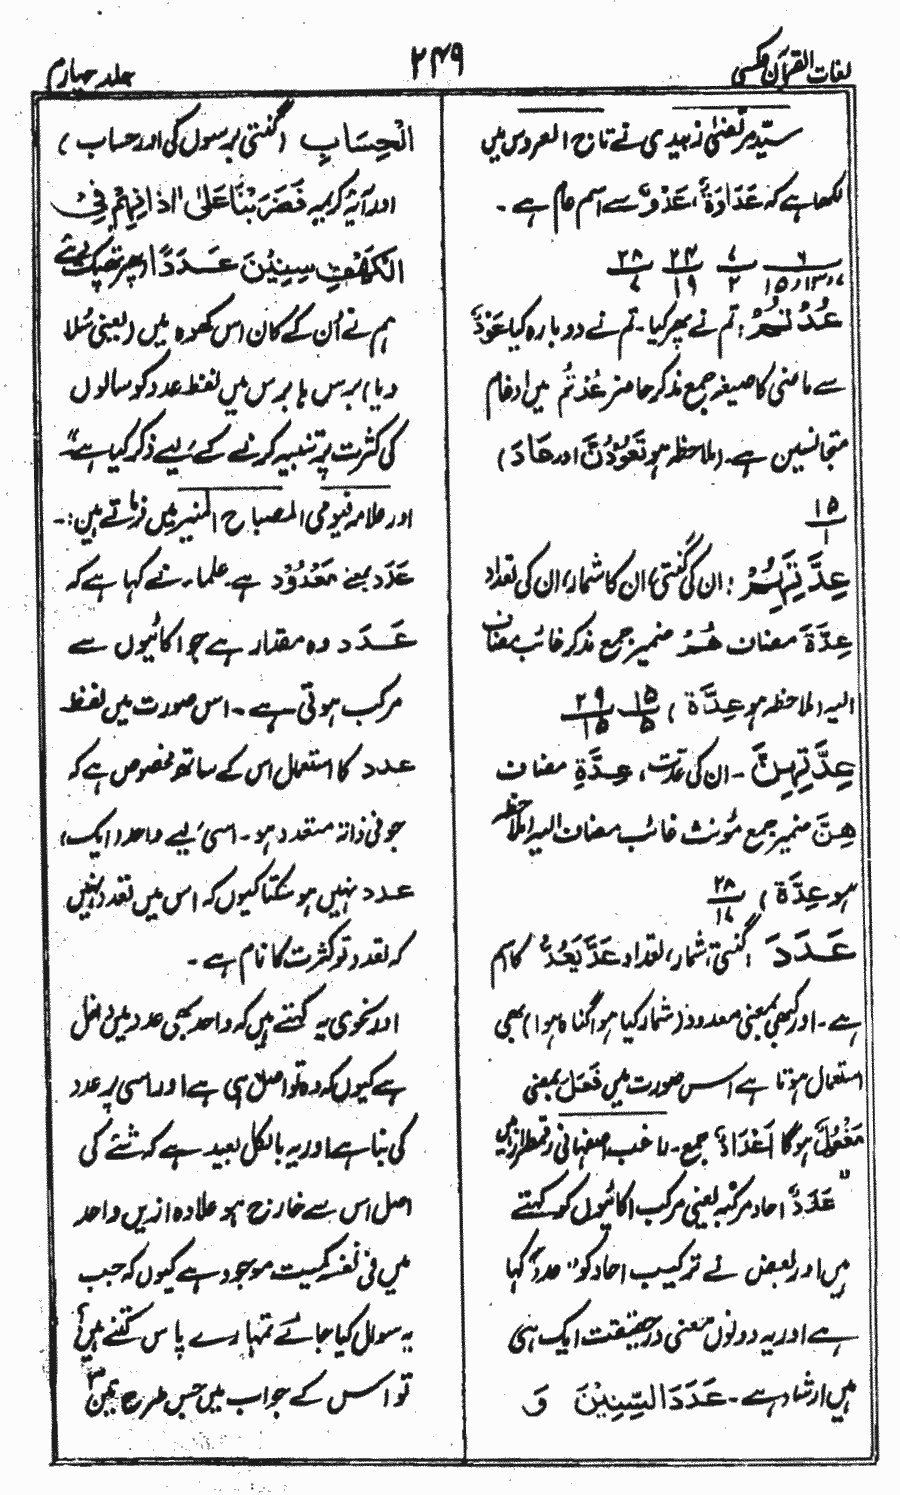 لغات القرآن عکسی
۲۴۹
جلد چہارم
سید مرتضیٰ زبیدی نے تاج العروس میں
لکھا ہے کہ عَدَاوَۃٌ، عَدْوٌ سے اسم عام ہے ۔
عُدْتُمْ : تم نے پھر کیا ۔ تم نے دوبارہ کیا عَوْدٌ
سے ماضی کا صیغہ جمع مذکر حاضر عُدْتُمْ میں ادغام
متجانسین ہے ۔ (ملاحظہ ہو تَعُوْدُنَّ اور عَادَ)
۱۵
۱
عِدَّتِہِمْ : ان کی گنتی، ان کا شمار، ان کی تعداد
عِدَّۃَ مضاف ھُمْ ضمیر جمع مذکر غائب مضاف
الیہ (ملاحظہ ہو عِدَّۃَ) ۱۵ ۲۹
۵ ۱۵
عِدَّتِہِنَّ ۔ ان کی عدت، عِدَّۃِ مضاف
ھِنَّ ضمیر جمع مؤنث غائب مضاف الیہ (ملاحظہ
ہو عِدَّۃَ) ۲۸
۱۷
عَدَدَ گنتی، شمار، تعداد عَدَّ یَعُدُّ کا اسم
ہے ۔ اور کبھی بمعنی معدود (شمار کیا ہوا گنا ہوا) بھی
استعمال ہوتا ہے اس صورت میں فَعَلٌ بمعنی
مَفْعُوْلٌ ہوگا اَعْدَادٌ جمع ۔ راغب اصفہانی رقمطراز ہیں
"عَدَدٌ احاد مرکبہ یعنی مرکب اکائیوں کو کہتے
ہیں اور بعض نے ترکیب احاد کو "عدد" کہا
ہے اور یہ دونوں معنی درحقیقت ایک ہی
ہیں ارشاد ہے ۔ عَدَدَ السِّنِیْنَ وَ
الْحِسَابِ (گنتی برسوں کی اور حساب)
اور آیۂ کریمہ فَضَرَبْنَا عَلٰی اٰذَانِہِمْ فِی
الْکَھْفِ سِنِیْنَ عَدَدًا (پھر تھپک دیے
ہم نے اُن کے کان اس کھوہ میں (یعنی سُلا
دیا) برس ہا برس میں لفظ عدد کو سالوں
کی کثرت پر تنبیہ کرنے کے لیے ذکر کیا ہے"
اور علامہ فیومی المصباح المنیر میں فرماتے ہیں :-
عَدَد بمعنے مَعْدُوْد ہے ۔ علماء نے کہا ہے کہ
عَدَد وہ مقدار ہے جو اکائیوں سے
مرکب ہوتی ہے ۔ اس صورت میں لفظ
عدد کا استعمال اس کے ساتھ مخصوص ہے کہ
جو فی ذاتہ متعدد ہو ۔ اسی لیے واحد (ایک)
عدد نہیں ہو سکتا کیوں کہ اس میں تعدد نہیں
کہ تعدد تو کثرت کا نام ہے ۔
اور نحوی یہ کہتے ہیں کہ واحد بھی عدد میں داخل
ہے کیوں کہ وہ تو اصل ہی ہے اور اسی پر عدد
کی بنا ہے اور یہ بالکل بعید ہے کہ شئے کی
اصل اس سے خارج ہو علاوہ ازیں واحد
میں فی نفسہ کمیت موجود ہے کیوں کہ جب
یہ سوال کیا جائے تمہارے پاس کتنے ہیں؟
تو اس کے جواب میں جس طرح تین